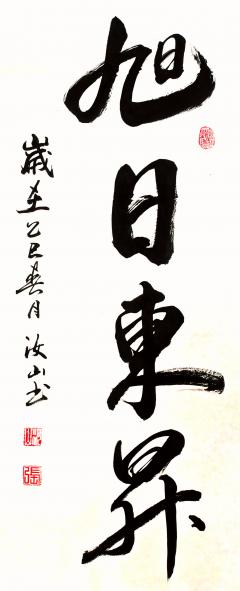 旭日東昇
歲在乙巳春月汝山书
張